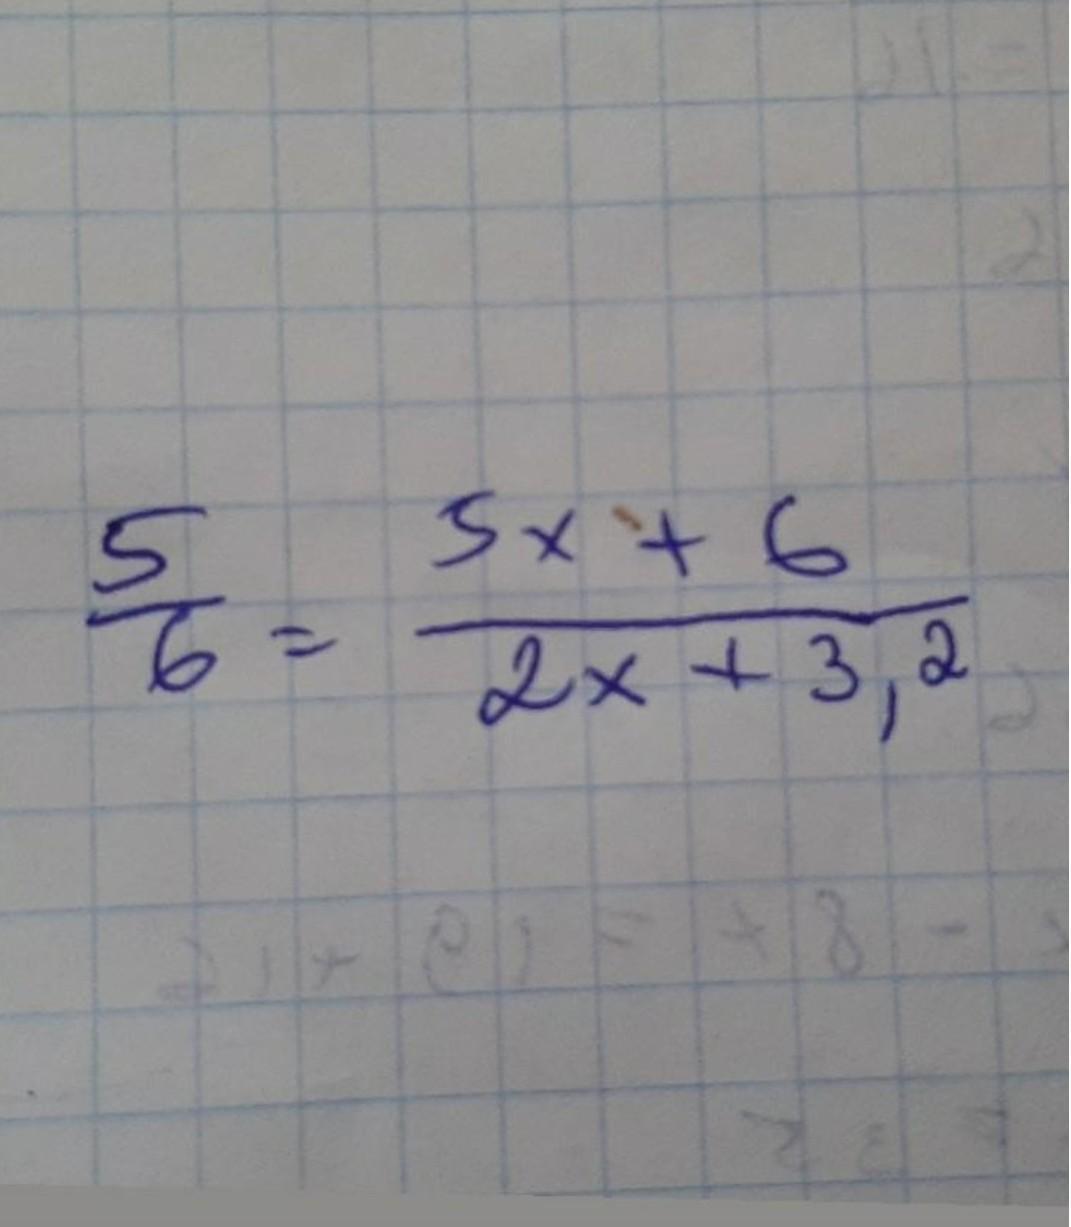 5/6 = (5x + 6)/(2x + 3,2)